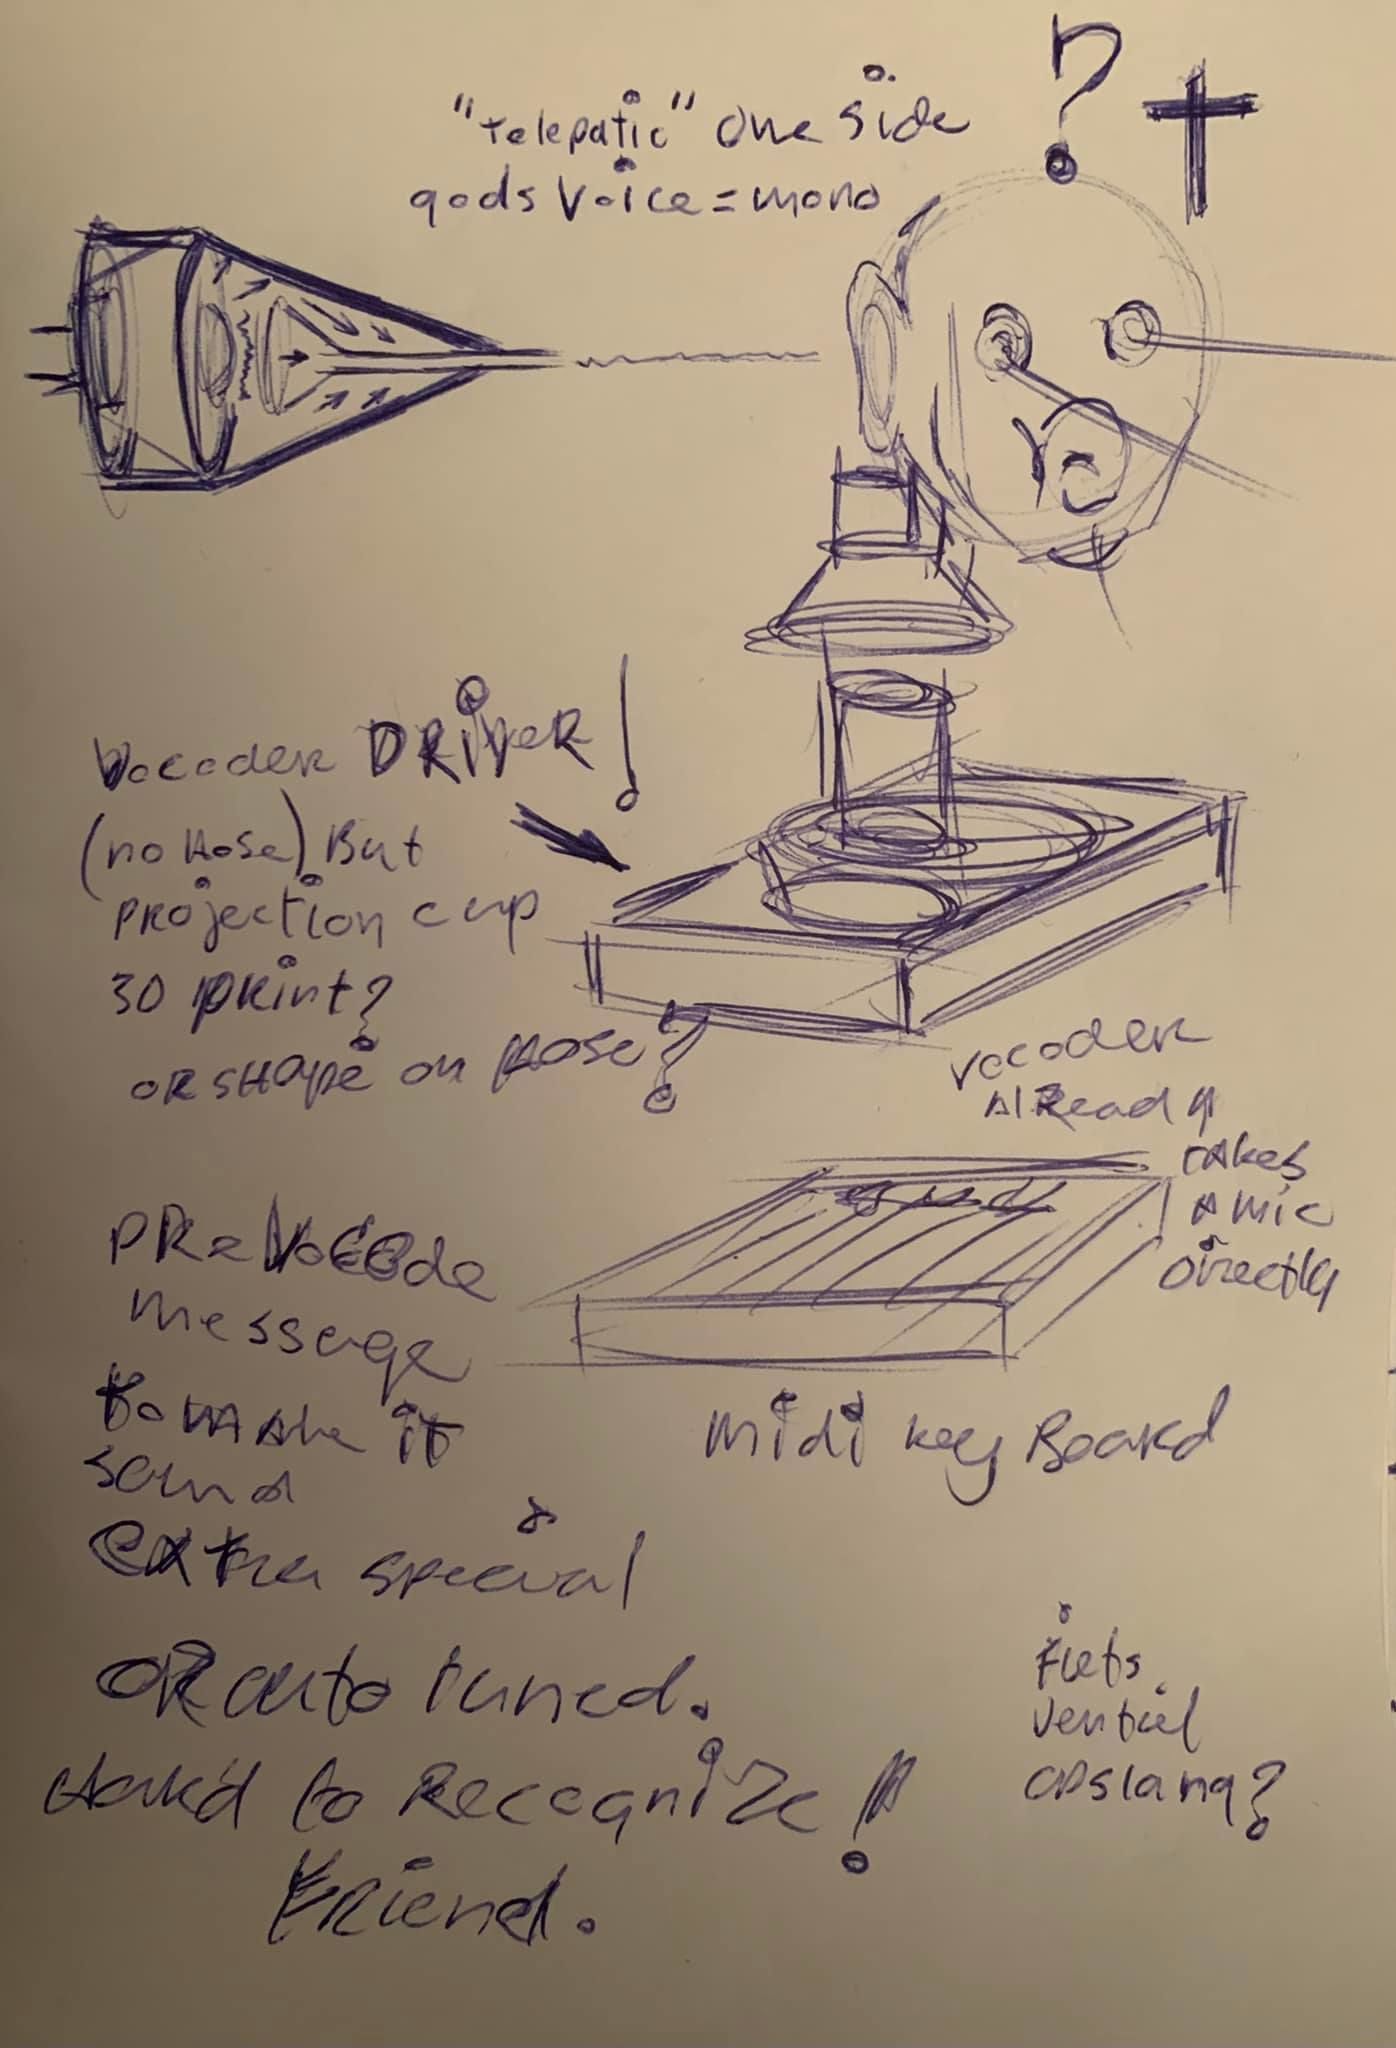 "telepatic" one side
gods voice = mono
?
Vocoder DRIVER!
(no Hose) But
projection cup
3D print?
or shape on Hose?
vocoder
AlReady
takes
A mic
directly
message
to make it
sound
extra special
midi keyBoard
OR auto tuned.
Hard to Recognize!
Friend.
fiets
ventiel
opslang?